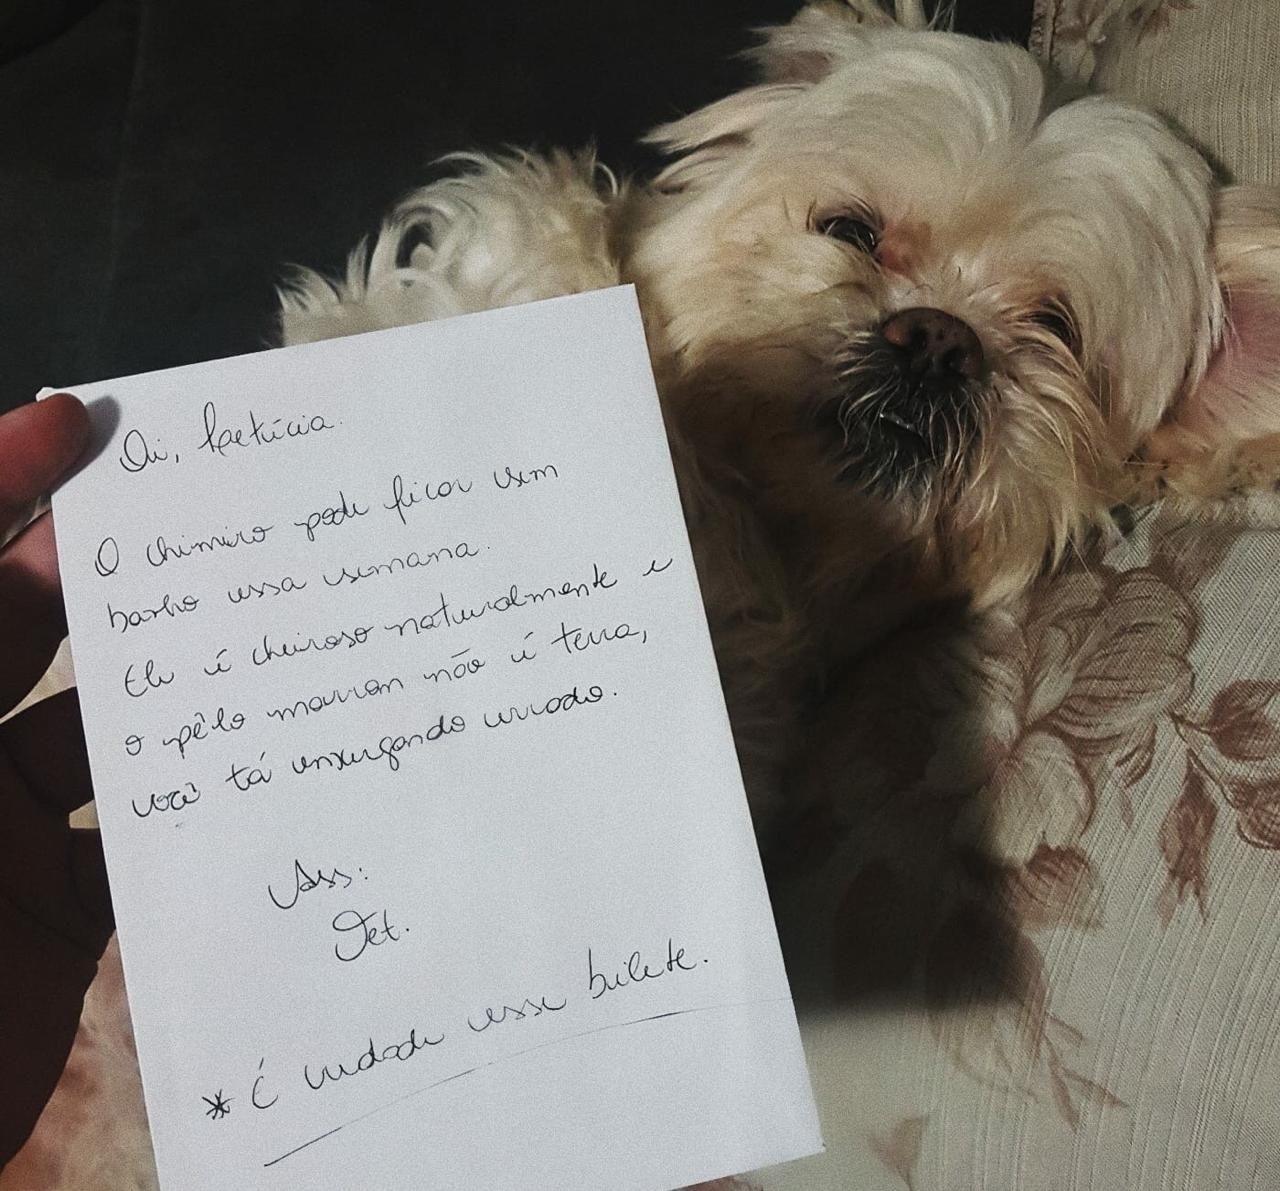 Oi, Laetícia.
O chimiro pode ficar sem
banho essa semana.
Ele é cheiroso naturalmente e
o pêlo marrom não é terra,
você tá enxergando errado.
Ass:
Vet.
* É verdade esse bilete.